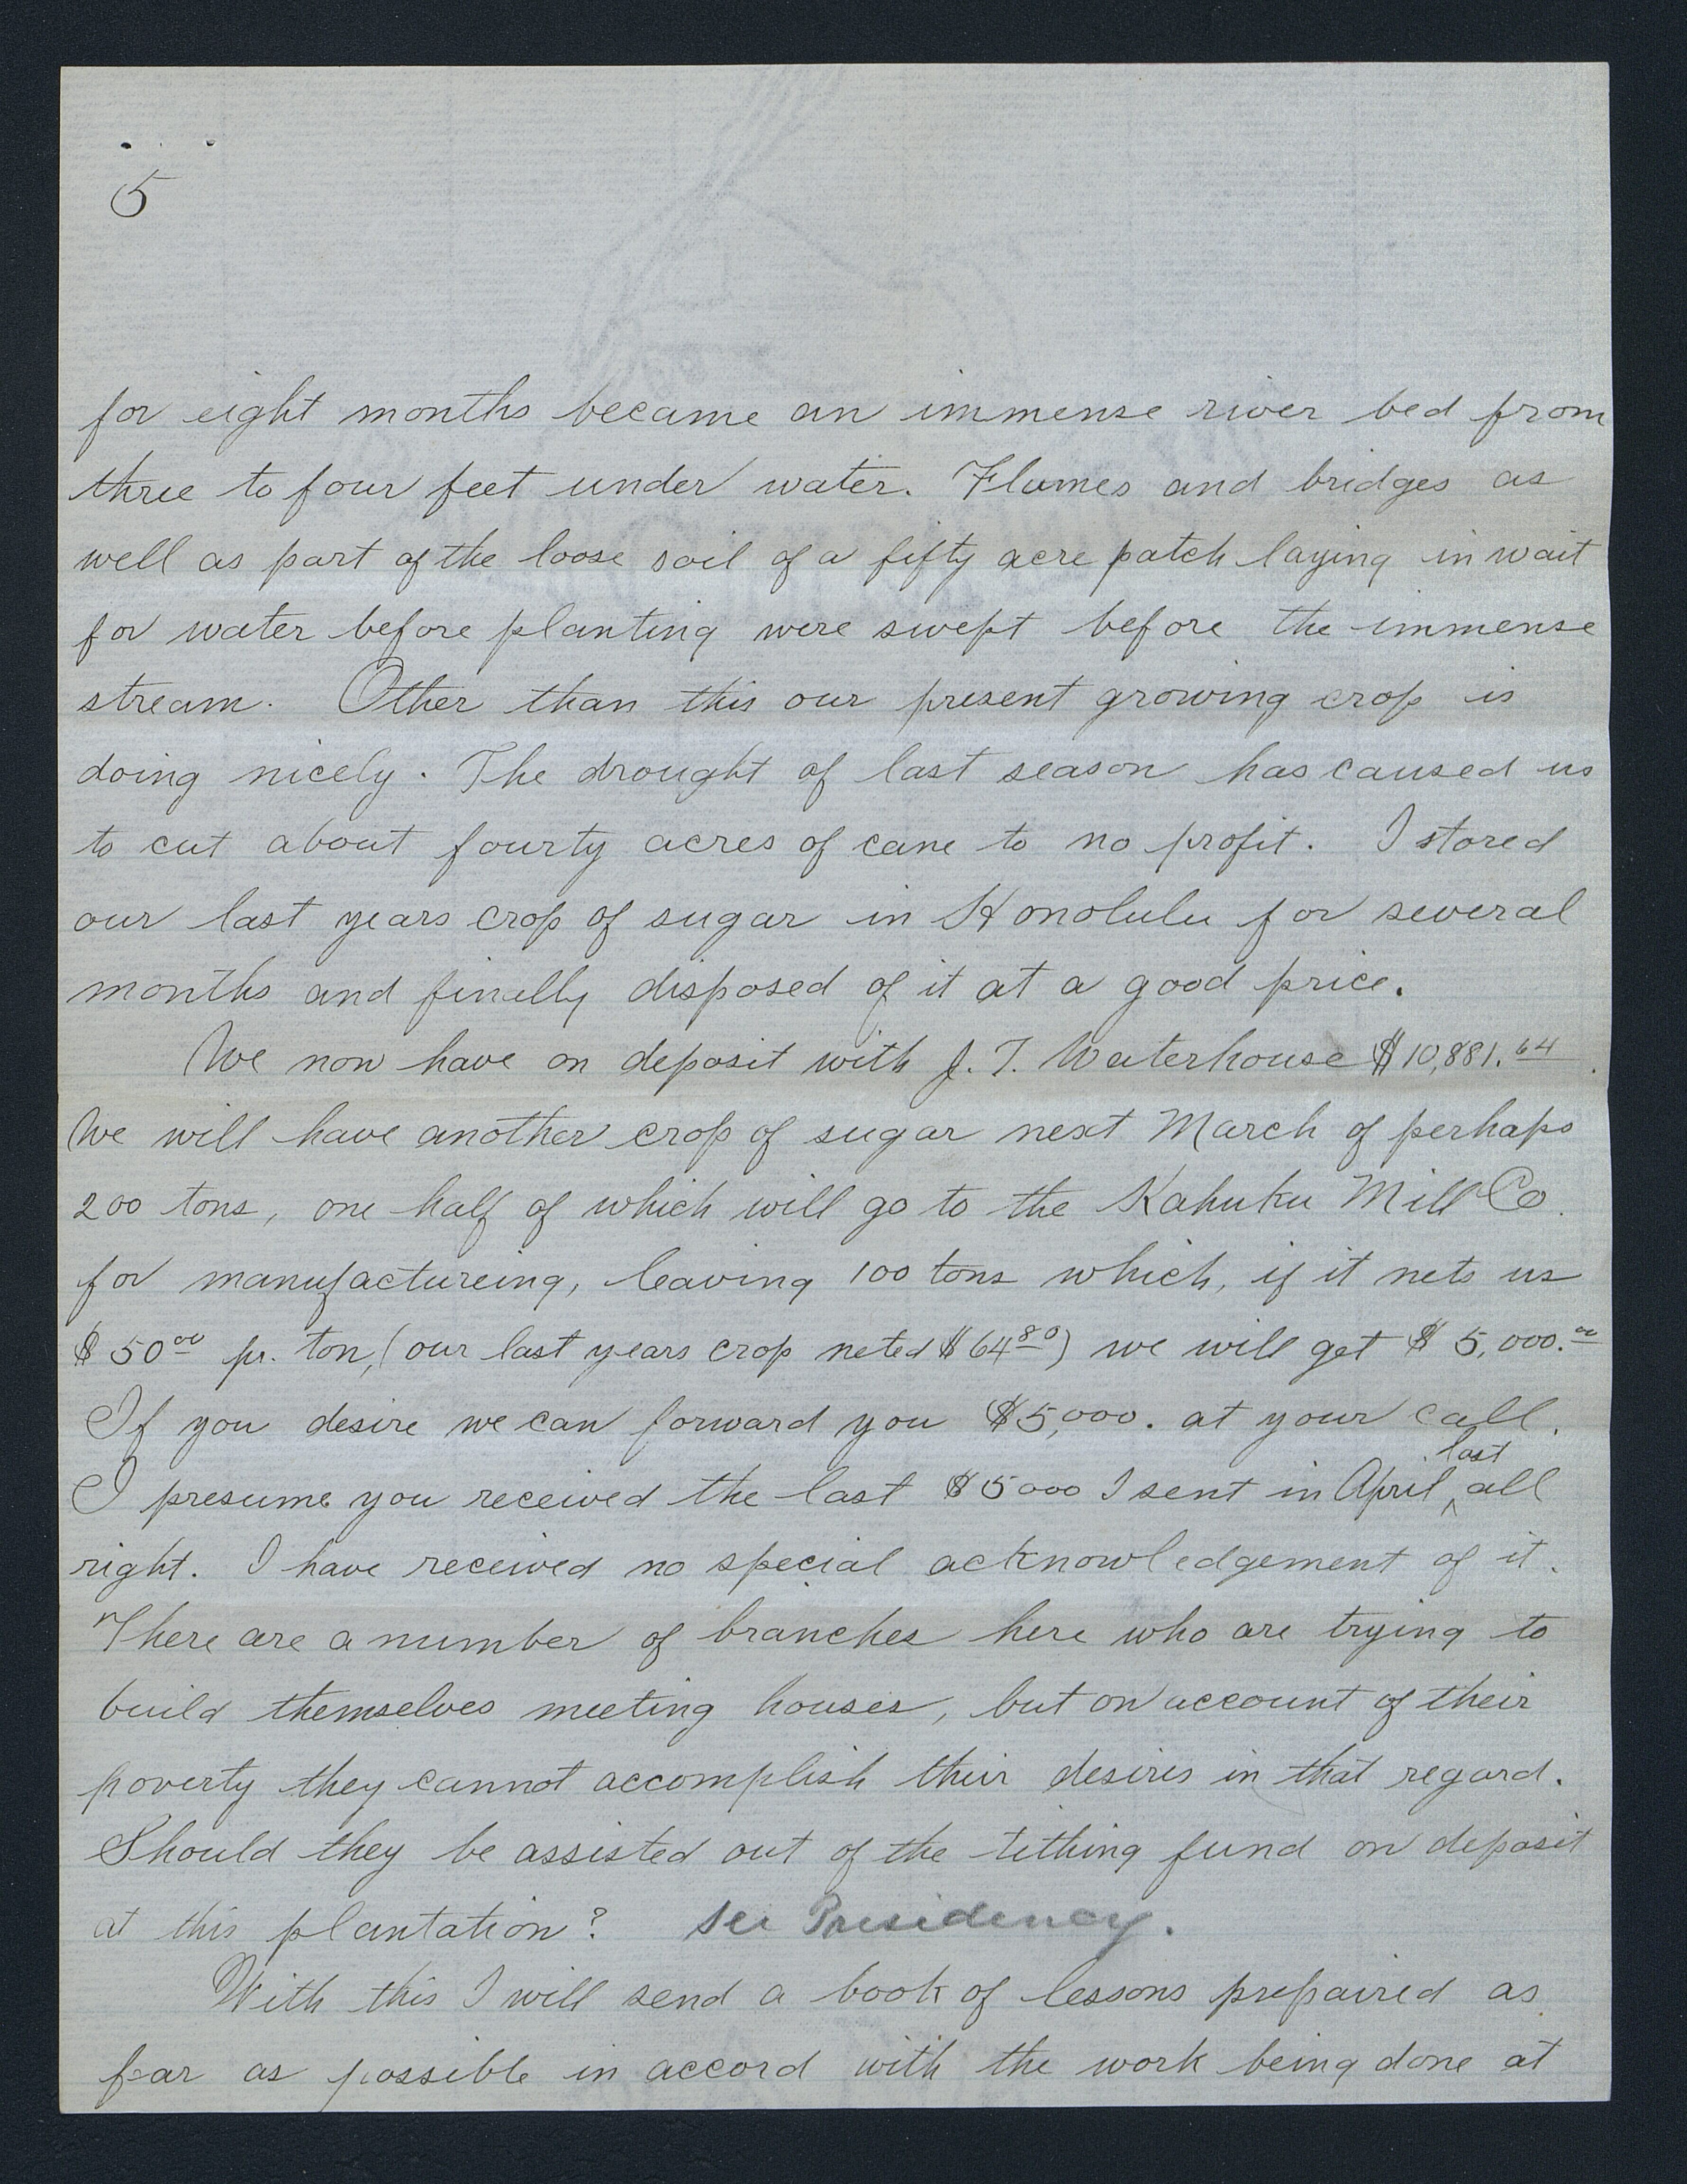 5
for eight months became an immense river bed from
three to four feet under water. Flumes and bridges as
well as part of the loose soil of a fifty acre patch laying in wait
for water before planting were swept before the immense
stream. Other than this our present growing crop is
doing nicely. The drought of last season has caused us
to cut about fourty acres of cane to no profit. I stored
our last years crop of sugar in Honolulu for several
months and finally disposed of it at a good price.
We now have on deposit with J. T. Waterhouse $10,881.64.
We will have another crop of sugar next March of perhaps
200 tons, one half of which will go to the Kahuku Mill Co.
for manufactureing, leaving 100 tons which, if it nets us
$50 00 pr. ton, (our last years crop neted $64 80) we will get $5,000.00
If you desire we can forward you $5,000. at your call.
I presume you received the last $5000 I sent in April last all
right. I have received no special acknowledgement of it.
There are a number of branches here who are trying to
build themselves meeting houses, but on account of their
poverty they cannot accomplish their desires in that regard.
Should they be assisted out of the tithing fund on deposit
at this plantation? See Presidency.
With this I will send a book of lessons prepaired as
far as possible in accord with the work being done at